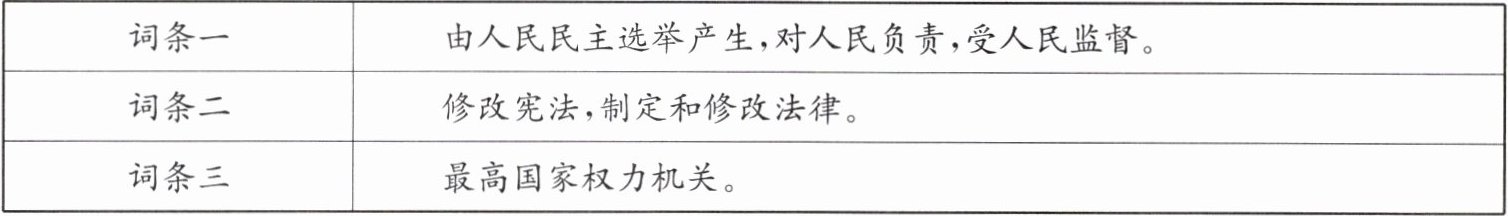 词条一 由人民民主选举产生,对人民负责,受人民监督。
词条二 修改宪法,制定和修改法律。
词条三 最高国家权力机关。